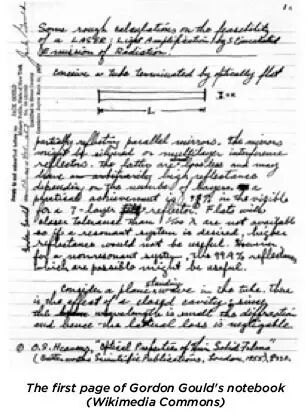 Some rough calculations on the feasibility
of a LASER: Light Amplification by Stimulated
Emission of Radiation.
conceive a tube terminated by optically flat
L
partially reflecting parallel mirrors. The mirrors
might be silvered or multilayer interference
reflectors. The latter are loss less and may
have an high reflectance
depending on the number of layers. A
practical achievement is 98% in the visible
for a 7-layer reflector. Flats with
closer tolerance than are not available
so if a resonant system is desired, higher
reflectance would not be useful. However
for a nonresonant system, the 99.9% reflectance
which are possible might be useful.
Consider a plane standing wave in the tube. There
is the effect of a closed cavity; since
the wavelength is small the diffraction
and hence the lateral loss is negligable.
O.S. Heavens, "Optical Properties of Thin Solid Films"
(Butterworths Scientific Publications, London, 1955),
The first page of Gordon Gould's notebook
(Wikimedia Commons)